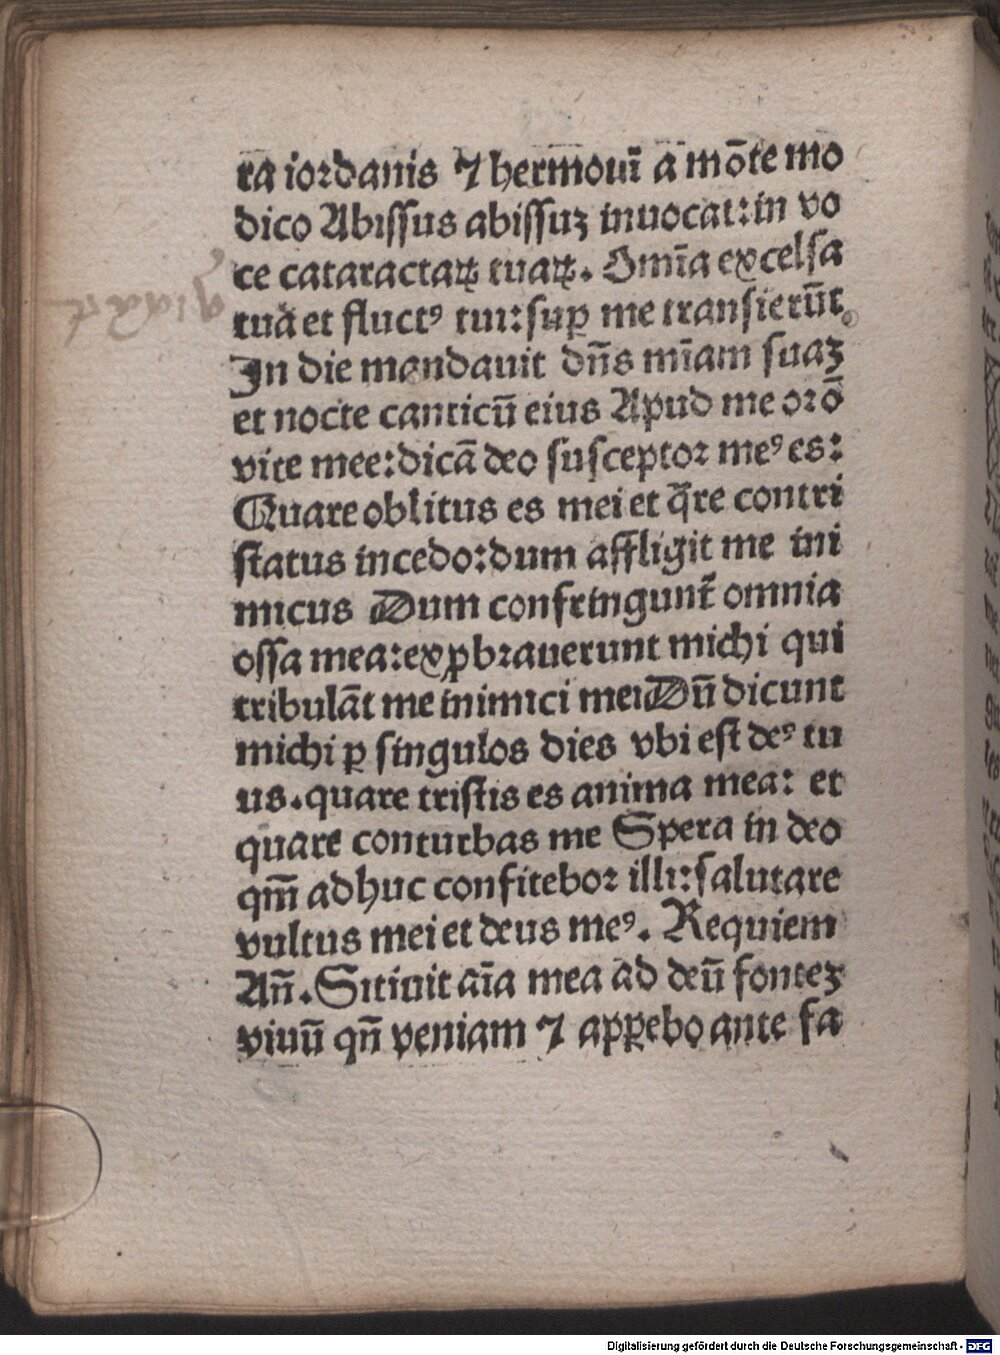 ra iordanis ⁊ hermouī a mōte mo
dico Abissus abissuꝫ inuocat: in vo
ce cataractaꝝ tuaꝝ. Omīa excelsa
tua et fluctꝰ tui: suꝑ me transierūt.
In die mandauit dn̄s mīam suaꝫ
et nocte canticū eius Apud me orō
vite mee: dicā deo susceptor meꝰ es:
Quare oblitus es mei et q̄re contri
status incedo: dum affligit me ini
micus Dum confringunt̄ omnia
ossa mea: exꝓbrauerunt michi qui
tribulāt me inimici mei Dū dicunt
michi ꝑ singulos dies vbi est deꝰ tu
us. quare tristis es anima mea: et
quare conturbas me Spera in deo
qm̄ adhuc confitebor illi: salutare
vultus mei et deus meꝰ. Requiem
An̄. Sitiuit aīa mea ad deū fonteꝫ
viuū qn̄ veniam ⁊ apꝑebo ante fa
Digitalisierung gefördert durch die Deutsche Forschungsgemeinschaft - DFG